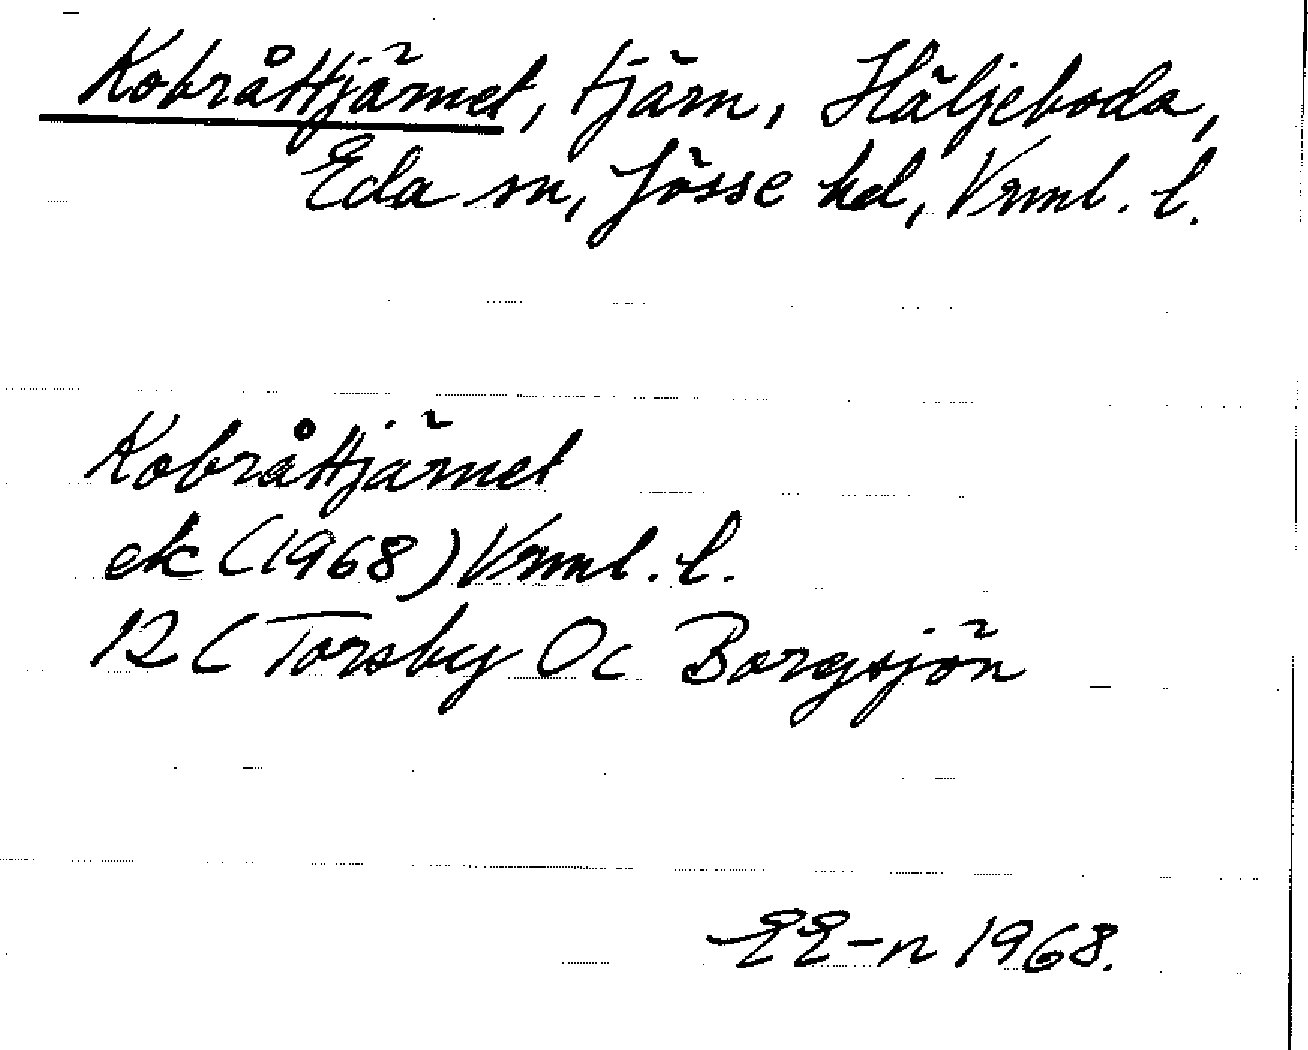 Kobråttjärnet, tjärn, Häljeboda,
Eda sn, Jösse hd, Vrml. l.
Kobråttjärnet
ek (1968) Vrml. l.
12 C Torsby Oc Borgsjön
EE-n 1968.